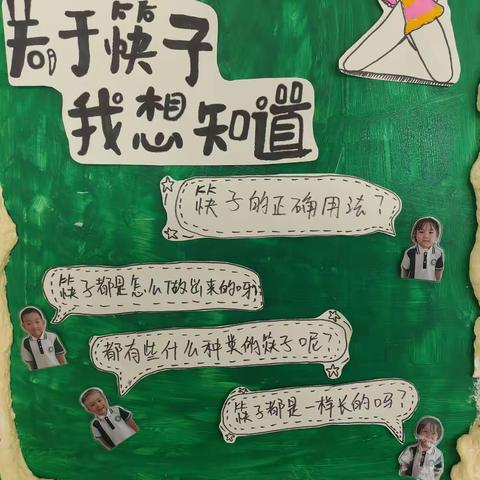 关于筷子
我想知道
筷子的正确用法?
筷子都是怎么做出来的呀
都有些什么种类的筷子呢?
筷子都是一样长的吗?